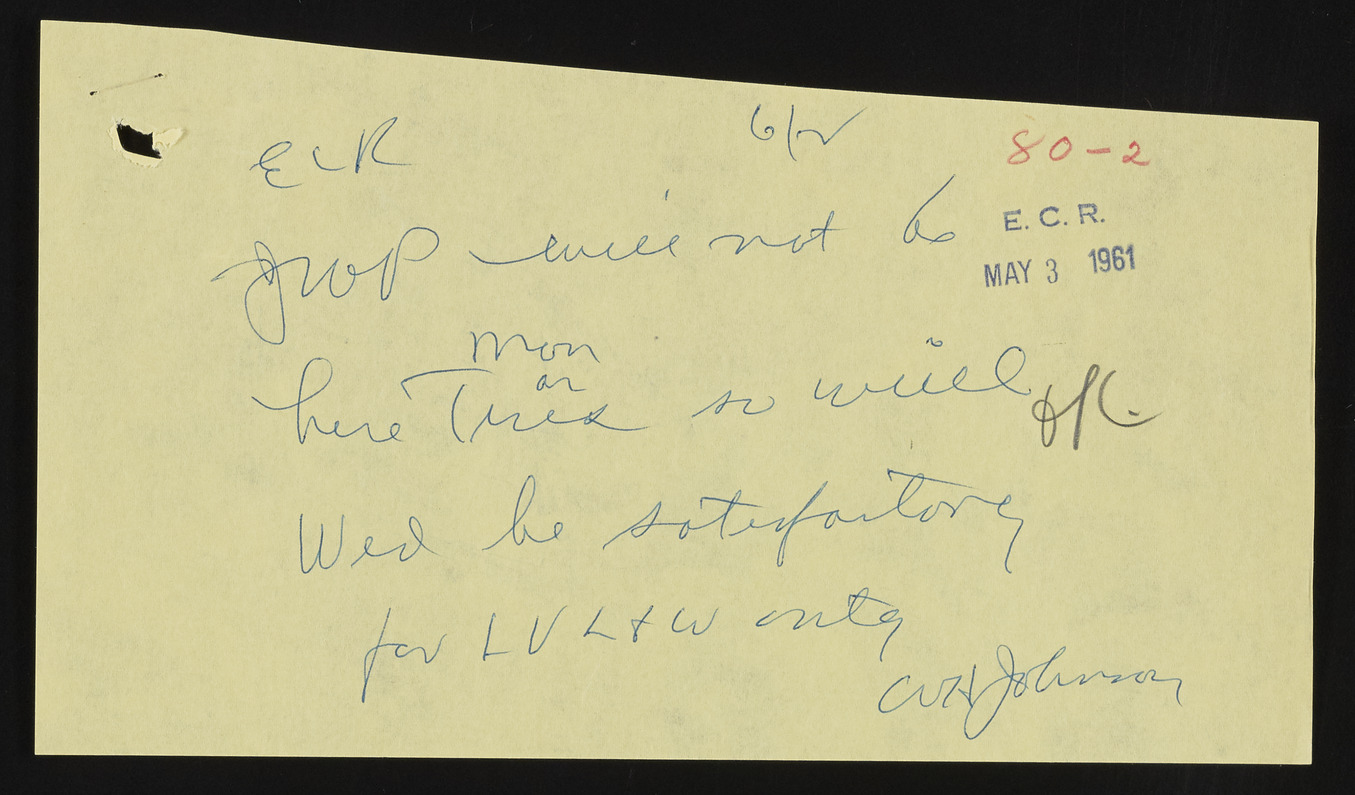 ECR
6/2
80-2
E. C. R.
MAY 3 1961
JWP will not be
here Mon or Tues so will
Wed be satisfactory
for LVL&W only
WH Johnson